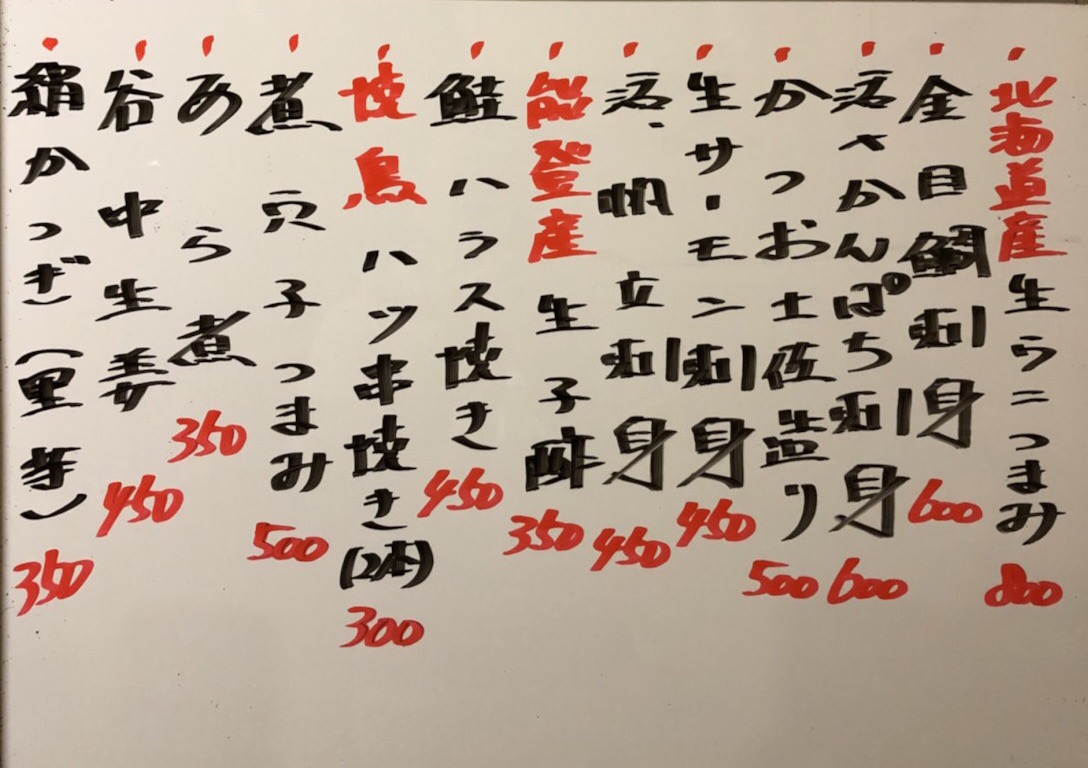 北海道産生ウニつまみ 800
金目鯛刺身 600
活〆かんぱち刺身 600
かつお土佐造り 500
生サーモン刺身 450
活帆立刺身 450
能登産生子酢 350
鮭ハラス焼き 450
焼鳥ハツ串焼き(2本) 300
煮穴子つまみ 500
あら煮 350
谷中生姜 450
絹かつぎ(里芋) 350